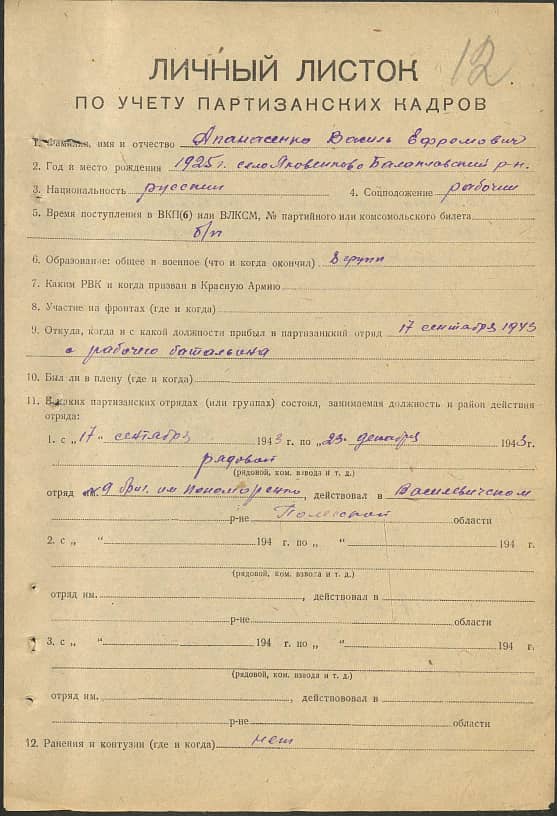 12
ЛИЧНЫЙ ЛИСТОК
ПО УЧЕТУ ПАРТИЗАНСКИХ КАДРОВ
1. Фамилия, имя и отчество Апанасенко Василь Ефремович
2. Год и место рождения 1925 г. село Яковенково Балаклавский р-н.
3. Национальность русский 4. Соцположение рабочий
5. Время поступления в ВКП(б) или ВЛКСМ, № партийного или комсомольского билета
б/п
6. Образование: общее и военное (что и когда окончил) 8 групп
7. Каким РВК и когда призван в Красную Армию
8. Участие на фронтах (где и когда)
9. Откуда, когда и с какой должности прибыл в партизанкий отряд 17 сентября 1943
с рабочего батальона
10. Был ли в плену (где и когда)
11. В каких партизанских отрядах (или группах) состоял, занимаемая должность и район действия
отряда:
1. с „17“ сентября 1943 г. по „23“ декабря 1943 г.
рядовой
(рядовой, ком. взвода и т. д.)
отряд №9 бриг. им Пономаренко, действовал в Василевичском
р-не Полесской области
2. с „ “ 194 г. по „ “ 194 г.
(рядовой, ком. взвода и т. д.)
отряд им. , действовал в
р-не области
3. с „ “ 194 г. по „ “ 194 г.
(рядовой, ком. взвода и т. д.)
отряд им. , действововал в
р-не области
12. Ранения и контузии (где и когда) нет